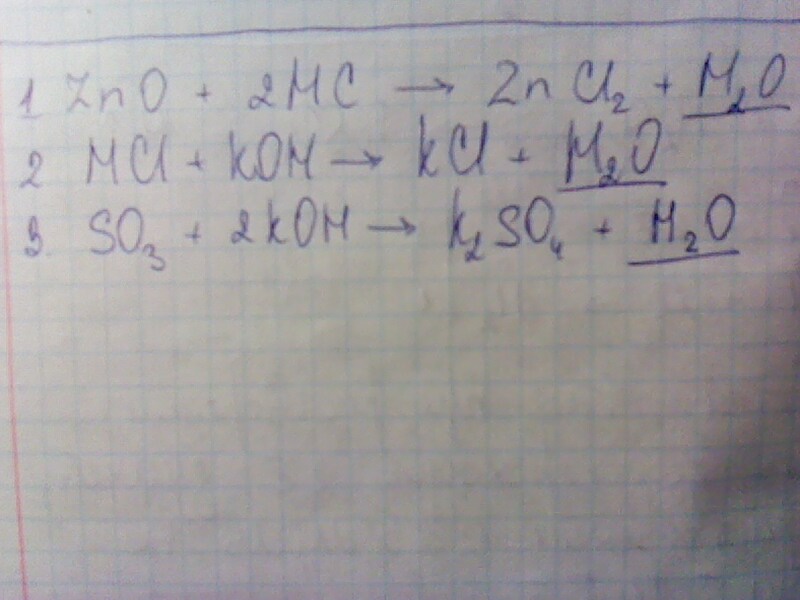 1 ZnO + 2HC → ZnCl₂ + H₂O
2 HCl + KOH → KCl + H₂O
3 SO₃ + 2KOH → K₂SO₄ + H₂O